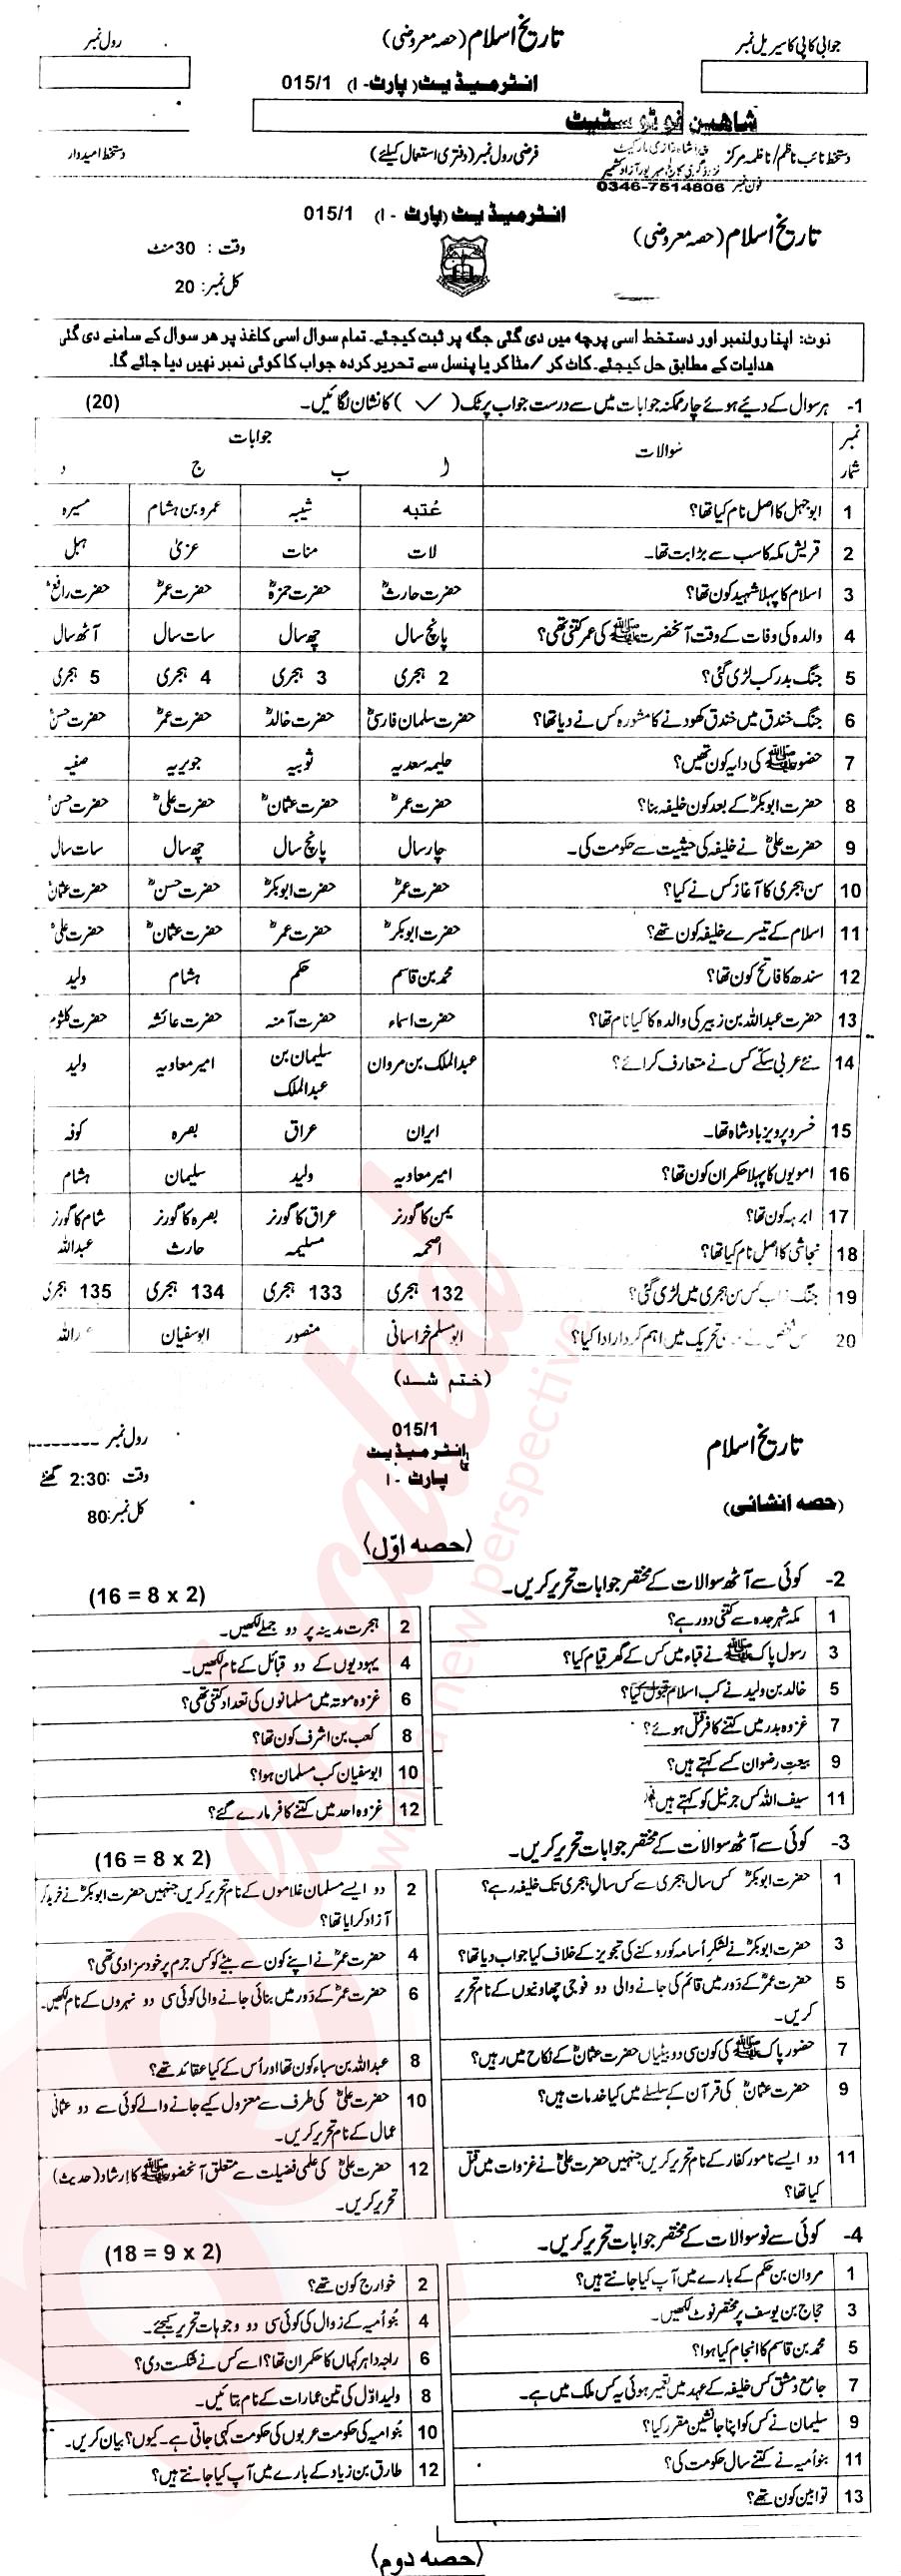 تاریخ اسلام (حصہ معروضی)
جوابی کاپی کا سیریل نمبر
رول نمبر
انٹرمیڈیٹ (پارٹ - I) 015/1
شاہین فوٹو سٹیٹ
دستخط نائب ناظم/ناظمہ مرکز
فرضی رول نمبر (دفتری استعمال کیلئے)
دستخط امیدوار
فون نمبر 0346-7514806
تاریخ اسلام (حصہ معروضی)
انٹرمیڈیٹ (پارٹ - I) 015/1
وقت : 30 منٹ
کل نمبر: 20
نوٹ: اپنا رولنمبر اور دستخط اسی پرچہ میں دی گئی جگہ پر ثبت کیجئے۔ تمام سوال اسی کاغذ پر ھر سوال کے سامنے دی گئی
ھدایات کے مطابق حل کیجئے۔ کاٹ کر / مٹا کر یا پنسل سے تحریر کردہ جواب کا کوئی نمبر نہیں دیا جائے گا۔
1- ہر سوال کے دئیے ہوئے چار ممکنہ جوابات میں سے درست جواب پر ٹک (✓) کا نشان لگائیں۔ (20)
نمبر شمار سوالات جوابات
ا ب ج د
1 ابوجہل کا اصل نام کیا تھا؟ عُتبہ شیبہ عمرو بن ہشام میسرہ
2 قریش مکہ کا سب سے بڑا بت تھا۔ لات منات عزیٰ ہبل
3 اسلام کا پہلا شہید کون تھا؟ حضرت حارثؓ حضرت حمزہؓ حضرت عمرؓ حضرت رافعؓ
4 والدہ کی وفات کے وقت آنحضرت ﷺ کی عمر کتنی تھی؟ پانچ سال چھ سال سات سال آٹھ سال
5 جنگ بدر کب لڑی گئی؟ 2 ہجری 3 ہجری 4 ہجری 5 ہجری
6 جنگ خندق میں خندق کھودنے کا مشورہ کس نے دیا تھا؟ حضرت سلمان فارسیؓ حضرت خالدؓ حضرت عمرؓ حضرت حسنؓ
7 حضور ﷺ کی دایہ کون تھیں؟ حلیمہ سعدیہ ثوبیہ جویریہ صفیہ
8 حضرت ابوبکرؓ کے بعد کون خلیفہ بنا؟ حضرت عمرؓ حضرت عثمانؓ حضرت علیؓ حضرت حسنؓ
9 حضرت علیؓ نے خلیفہ کی حیثیت سے حکومت کی۔ چار سال پانچ سال چھ سال سات سال
10 سن ہجری کا آغاز کس نے کیا؟ حضرت عمرؓ حضرت ابوبکرؓ حضرت حسنؓ حضرت عثمانؓ
11 اسلام کے تیسرے خلیفہ کون تھے؟ حضرت ابوبکرؓ حضرت عمرؓ حضرت عثمانؓ حضرت علیؓ
12 سندھ کا فاتح کون تھا؟ محمد بن قاسم حکم ہشام ولید
13 حضرت عبداللہ بن زبیر کی والدہ کا کیا نام تھا؟ حضرت اسماء حضرت آمنہ حضرت عائشہ حضرت کلثوم
14 نئے عربی سکّے کس نے متعارف کرائے؟ عبدالملک بن مروان سلیمان بن عبدالملک امیر معاویہ ولید
15 خسرو پرویز بادشاہ تھا۔ ایران عراق بصرہ کوفہ
16 امویوں کا پہلا حکمران کون تھا؟ امیر معاویہ ولید سلیمان ہشام
17 ابرہہ کون تھا؟ یمن کا گورنر عراق کا گورنر بصرہ کا گورنر شام کا گورنر
18 نجاشی کا اصل نام کیا تھا؟ اصحمہ مسلیمہ حارث عبداللہ
19 جنگ کس سن ہجری میں لڑی گئی؟ 132 ہجری 133 ہجری 134 ہجری 135 ہجری
20 تحریک میں اہم کردار ادا کیا؟ ابو مسلم خراسانی منصور ابوسفیان
(ختم شد)
تاریخ اسلام
015/1
رول نمبر
انٹرمیڈیٹ
پارٹ - I
وقت :2:30 گھنٹے
(حصہ انشائی)
کل نمبر:80
(حصہ اوّل)
2- کوئی سے آٹھ سوالات کے مختصر جوابات تحریر کریں۔ (16 = 8 x 2)
1 مکہ شہر جدہ سے کتنی دور ہے؟
2 ہجرت مدینہ پر دو جملے لکھیں۔
3 رسول پاک ﷺ نے قباء میں کس کے گھر قیام کیا؟
4 یہودیوں کے دو قبائل کے نام لکھیں۔
5 خالد بن ولید نے کب اسلام قبول کیا؟
6 غزوہ موتہ میں مسلمانوں کی تعداد کتنی تھی؟
7 غزوہ بدر میں کتنے کافر قتل ہوئے؟
8 کعب بن اشرف کون تھا؟
9 بیعت رضوان کسے کہتے ہیں؟
10 ابوسفیان کب مسلمان ہوا؟
11 سیف اللہ کس جرنیل کو کہتے ہیں؟
12 غزوہ احد میں کتنے کافر مارے گئے؟
3- کوئی سے آٹھ سوالات کے مختصر جوابات تحریر کریں۔ (16 = 8 x 2)
1 حضرت ابوبکرؓ کس سال ہجری سے کس سالِ ہجری تک خلیفہ رہے؟
2 دو ایسے مسلمان غلاموں کے نام تحریر کریں جنہیں حضرت ابوبکرؓ نے خرید کر
آزاد کرایا تھا؟
3 حضرت ابوبکرؓ نے لشکرِ اُسامہ کو روکنے کی تجویز کے خلاف کیا جواب دیا تھا؟
4 حضرت عمرؓ نے اپنے کون سے بیٹے کو کس جرم پر خود سزا دی تھی؟
5 حضرت عمرؓ کے دَور میں قائم کی جانے والی دو فوجی چھاونیوں کے نام تحریر
کریں۔
6 حضرت عمرؓ کے دَور میں بنائی جانے والی کوئی سی دو نہروں کے نام لکھیں۔
7 حضور پاک ﷺ کی کون سی دو بیٹیاں حضرت عثمانؓ کے نکاح میں رہیں؟
8 عبداللہ بن سباء کون تھا اور اُس کے کیا عقائد تھے؟
9 حضرت عثمانؓ کی قرآن کے سلسلے میں کیا خدمات ہیں؟
10 حضرت علیؓ کی طرف سے معزول کیے جانے والے کوئی سے دو عثمانی
عمال کے نام تحریر کریں۔
11 دو ایسے نامور کفار کے نام تحریر کریں جنہیں حضرت علیؓ نے غزوات میں قتل
کیا تھا؟
12 حضرت علیؓ کی علمی فضیلت سے متعلق آنحضور ﷺ کا اِرشاد (حدیث)
تحریر کریں۔
4- کوئی سے نو سوالات کے مختصر جوابات تحریر کریں۔ (18 = 9 x 2)
1 مروان بن حکم کے بارے میں آپ کیا جانتے ہیں؟
2 خوارج کون تھے؟
3 حجاج بن یوسف پر مختصر نوٹ لکھیں۔
4 بنُو اُمیہ کے زوال کی کوئی سی دو وجوہات تحریر کیجئے۔
5 محمد بن قاسم کا انجام کیا ہوا؟
6 راجہ داہر کہاں کا حکمران تھا؟ اسے کس نے شکست دی؟
7 جامع دمشق کس خلیفہ کے عہد میں تعمیر ہوئی یہ کس ملک میں ہے۔
8 ولید اوّل کی تین عمارات کے نام بتائیں۔
9 سلیمان نے کس کو اپنا جانشین مقرر کیا؟
10 بنُو امیہ کی حکومت عربوں کی حکومت کہی جاتی ہے۔ کیوں؟ بیان کریں۔
11 بنو اُمیہ نے کتنے سال حکومت کی؟
12 طارق بن زیاد کے بارے میں آپ کیا جانتے ہیں؟
13 توابین کون تھے؟
(حصہ دوم)